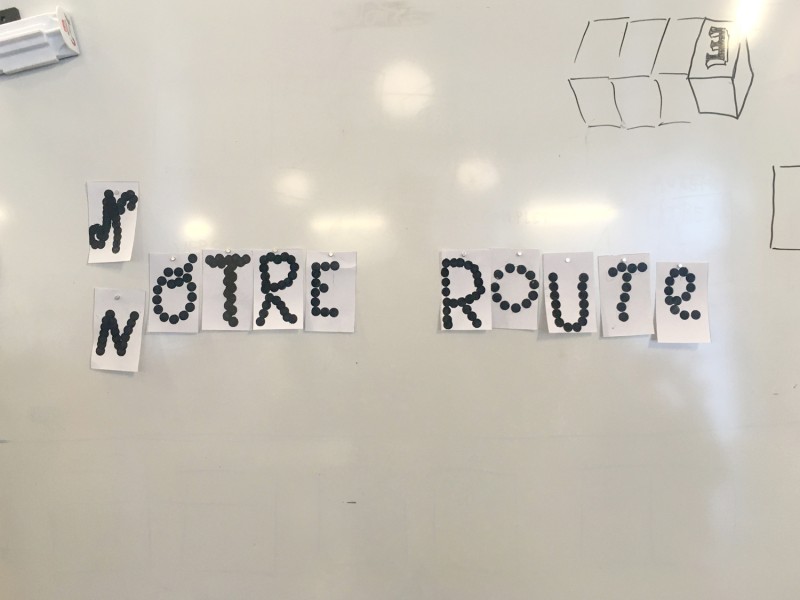 N
NÓTRE ROUTe